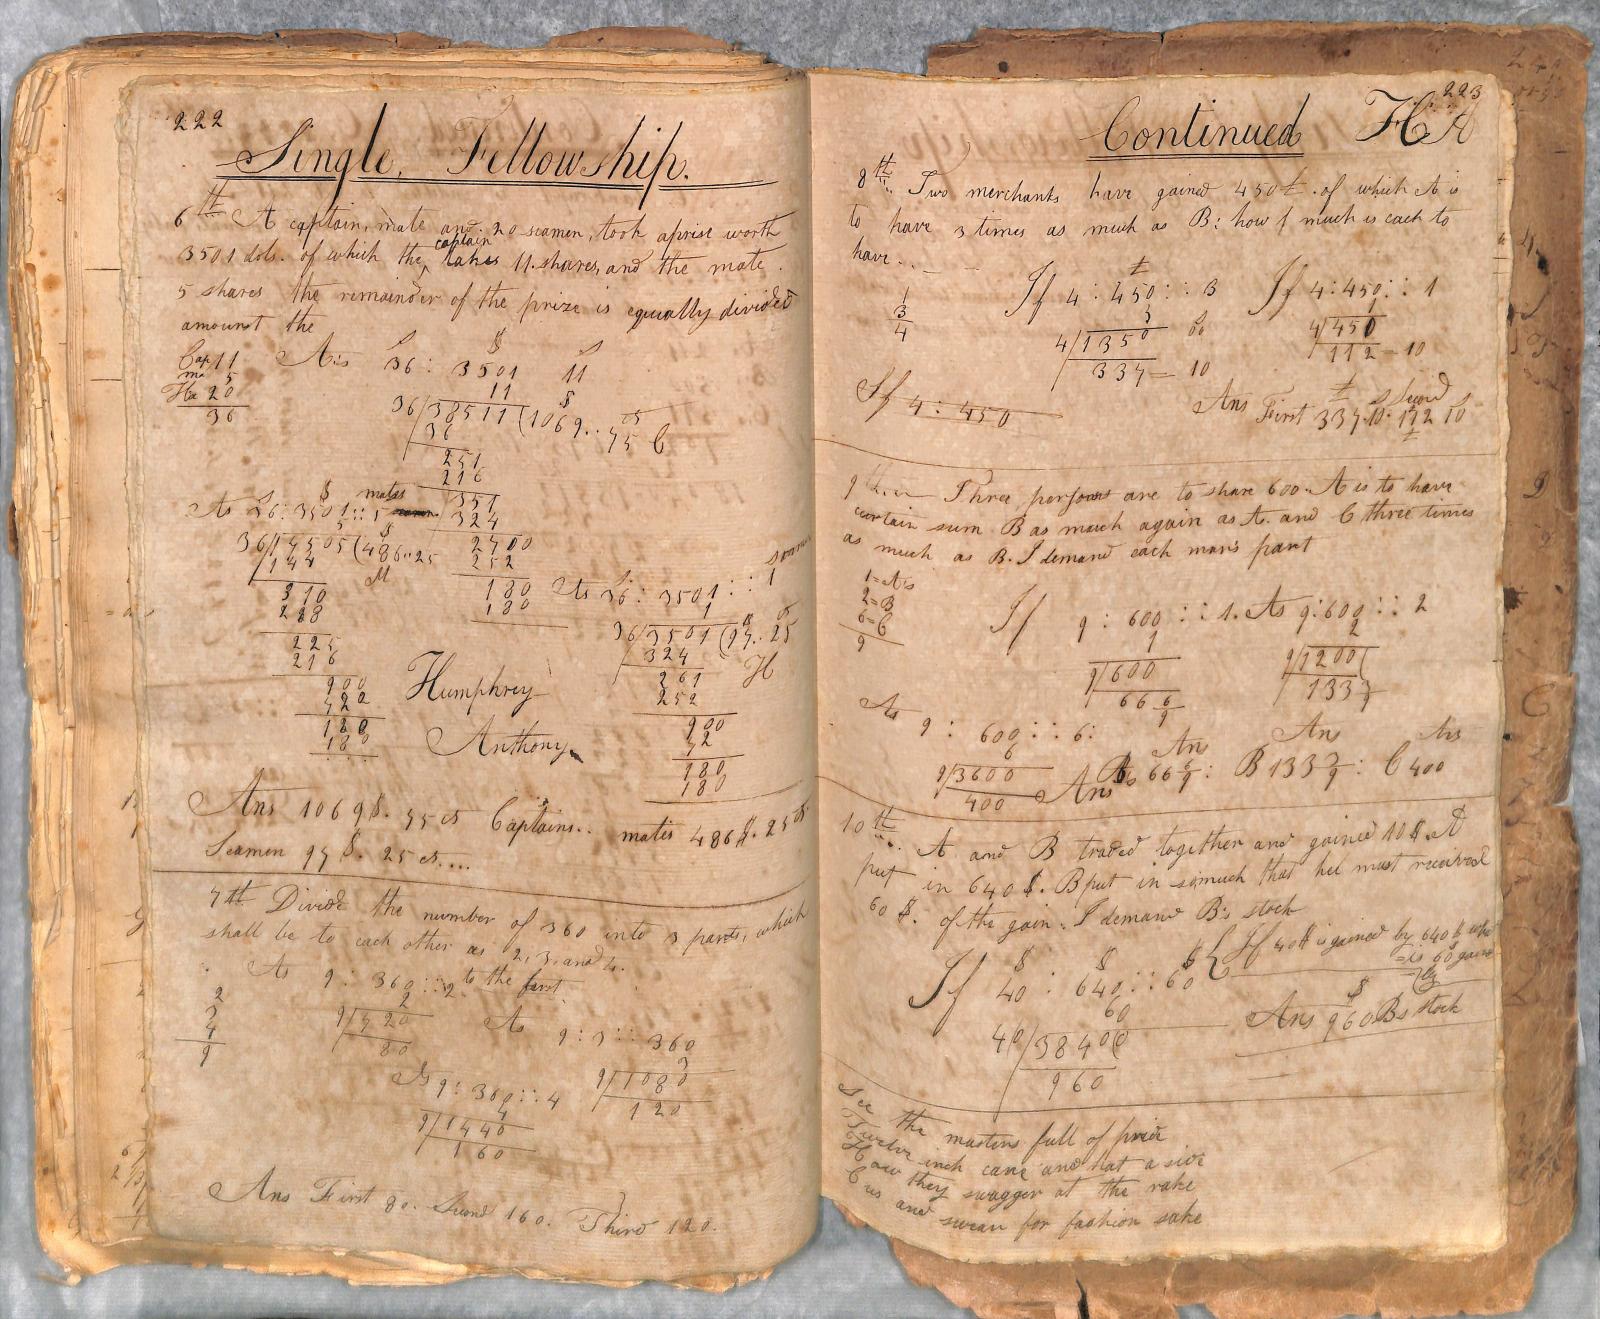 222
Single Fellowship.
6th A captain, mate and 20 seamen, took aprise worth
3501 dols. of which the captain takes 11 shares, and the mate
5 shares the remainder of the prize is equally divided
amount the
Cap 11
ma 5
20
36
As 36 : 3501 11
$
11
36/38511(1069..75 C
36
251
216
351
324
2700
252
180
180
As 36 : 3501 :: 5 mates
5
36/17505(486..25
144
M
310
288
225
216
900
720
180
180
As 36 : 3501 :: 1
1
36/3501(97..25
324
H
261
252
900
72
180
180
Humphrey
Anthony
Ans 1069$. 75 cts Captains.. mates 486$. 25 cts
Seamen 97$. 25 cts....
7th Divide the number of 360 into 3 parts, which
shall be to each other as 2, 3, and 4.
As 9 : 360 :: 2 to the first
2
3
4
9
2
9/720
80
As 9 : 3 :: 360
3
9/1080
120
As 9 : 360 :: 4
4
9/1440
160
Ans First 80. Second 160. Third 120.
223
Continued HA
8th Two merchants have gained 450£. of which A is
to have 3 times as much as B: how much is each to
have...
1
3
4
If 4 : 450 :: 3
£
3
4/1350
337 = 10
If 4 : 450 :: 1
1
4/450
112 - 10
If 4 : 450
Ans First 337.10. Second 112 10
9th Three persons are to share 600. A is to have
certain sum B as much again as A. and C three times
as much as B. I demand each man's part
1=A's
2=B
6=C
9
If 9 : 600 :: 1. As 9 : 600 :: 2
1
9/600
66 6/9
2
9/1200
133
As 9 : 600 :: 6:
6
9/3600
400
Ans Ans Ans
Ans 66 6/9 : B 133 : C 400
10th A and B traded together and gained 10$. A
put in 640$. B put in somuch that hee must received
60$. of the gain. I demand B's stock
If 40 : 640 :: 60
$ $ $
If 40$ is gained by 640$ who
is 60 gain
by
60
40/38400
960
Ans 960 Bs stock
See the masters full of pride
Twelve inch cane and hat a side
How they swagger at the rake
Cus and swear for fashion sake